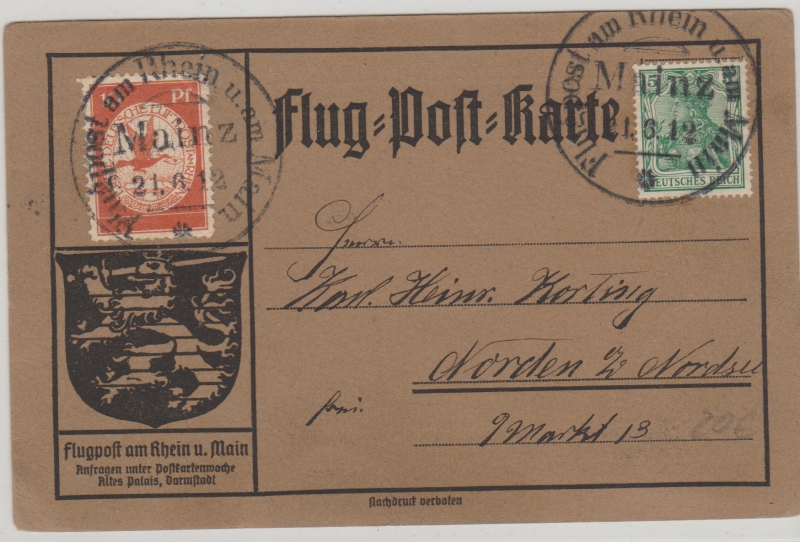 Flugpost am Rhein u. am Main
Mainz
21.6.12
Pf.
Flug-Post-Karte
Flugpost am Rhein u. am Main
Mainz
21.6.12
5
DEUTSCHES REICH
Herrn
Karl Heinr. Korting
Norden Nordsee
frei.
Markt 13
20€
Flugpost am Rhein u. Main
Anfragen unter Postkartenwoche
Altes Palais, Darmstadt
Nachdruck verboten